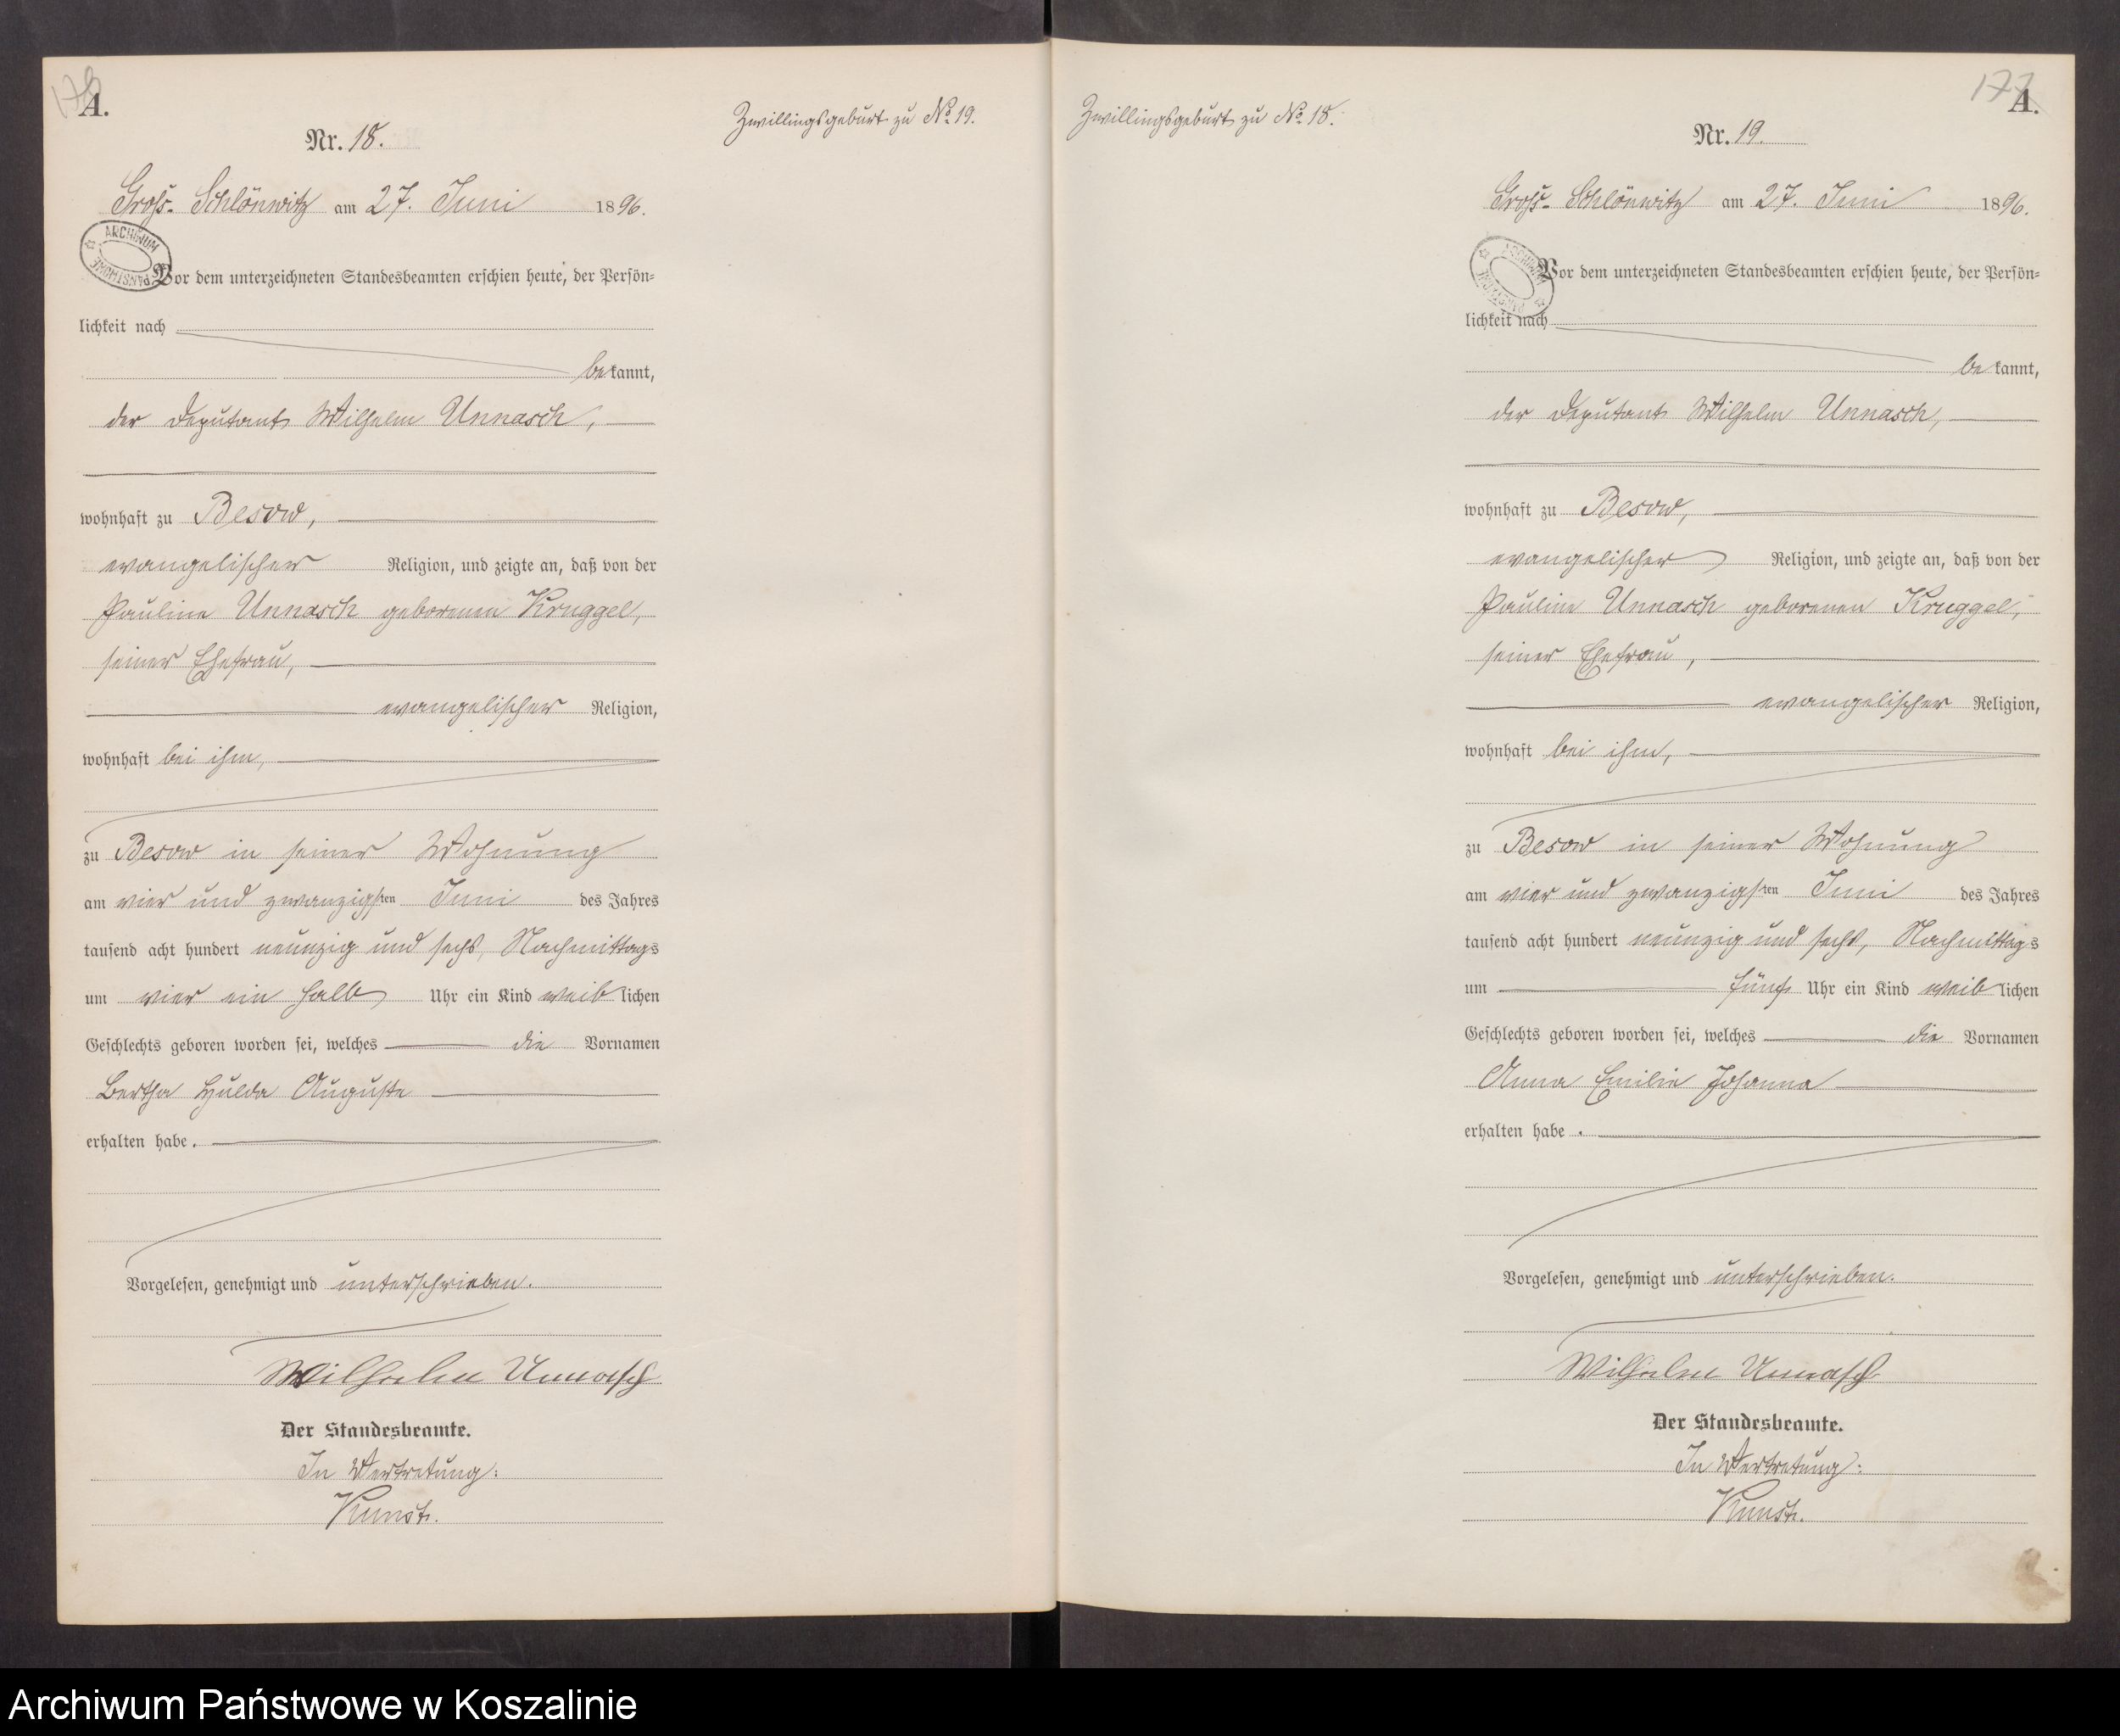 A.
Nr. 18.
Zwillingsgeburt zu No 19.
Groß-Schlönwitz am 27. Juni 1896.
ARCHIWUM PAŃSTWOWE
Vor dem unterzeichneten Standesbeamten erschien heute, der Persön=
lichkeit nach
bekannt,
der Deputant Wilhelm Unnasch,
wohnhaft zu Besow,
evangelischer Religion, und zeigte an, daß von der
Pauline Unnasch geborenen Kruggel,
seiner Ehefrau,
evangelischer Religion,
wohnhaft bei ihm,
zu Besow in seiner Wohnung
am vier und zwanzigsten Juni des Jahres
tausend acht hundert neunzig und sechs, Nachmittags
um vier ein halb Uhr ein Kind weiblichen
Geschlechts geboren worden sei, welches die Vornamen
Bertha Hulda Auguste
erhalten habe.
Vorgelesen, genehmigt und unterschrieben.
Wilhelm Unnasch
Der Standesbeamte.
In Vertretung:
Kunst.
177
A.
Zwillingsgeburt zu No 18.
Nr. 19.
Groß-Schlönwitz am 27. Juni 1896.
ARCHIWUM PAŃSTWOWE
Vor dem unterzeichneten Standesbeamten erschien heute, der Persön=
lichkeit nach
bekannt,
der Deputant Wilhelm Unnasch,
wohnhaft zu Besow,
evangelischer Religion, und zeigte an, daß von der
Pauline Unnasch geborenen Kruggel,
seiner Ehefrau,
evangelischer Religion,
wohnhaft bei ihm,
zu Besow in seiner Wohnung
am vier und zwanzigsten Juni des Jahres
tausend acht hundert neunzig und sechs, Nachmittags
um fünf Uhr ein Kind weiblichen
Geschlechts geboren worden sei, welches die Vornamen
Anna Emilie Johanna
erhalten habe.
Vorgelesen, genehmigt und unterschrieben.
Wilhelm Unnasch
Der Standesbeamte.
In Vertretung:
Kunst.
Archiwum Państwowe w Koszalinie